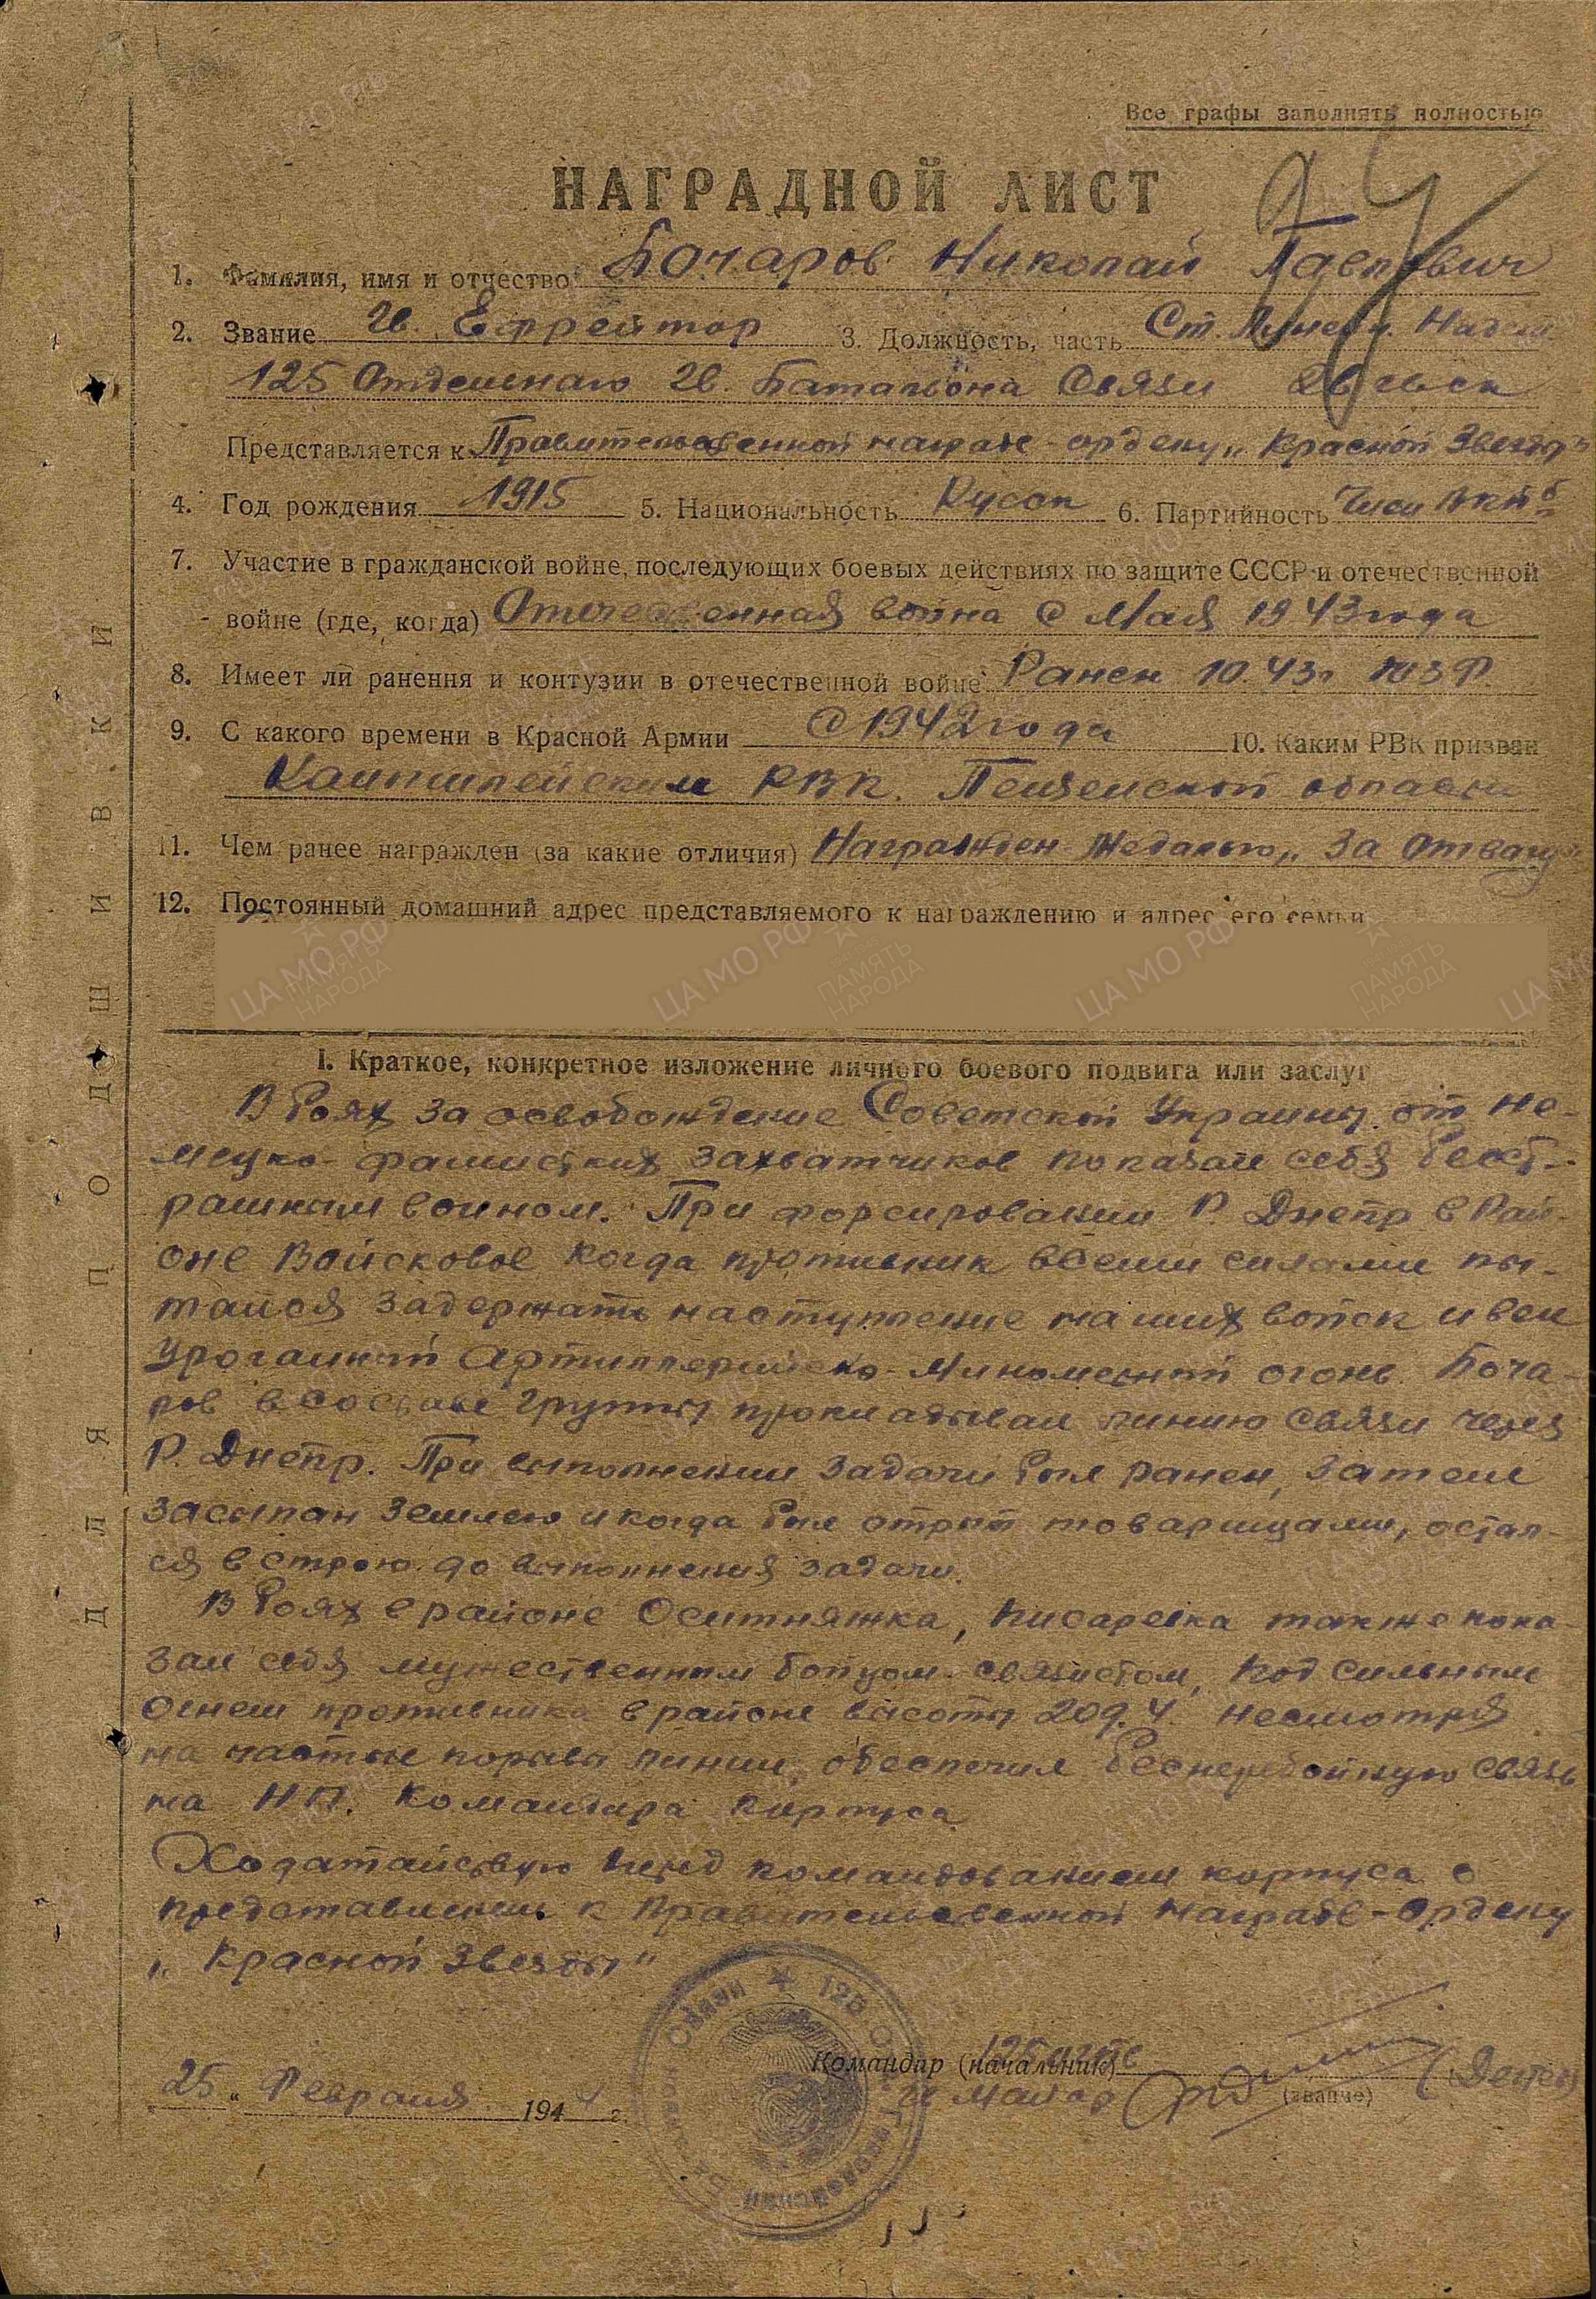 Все графы заполнять полностью
НАГРАДНОЙ ЛИСТ
1. Фамилия, имя и отчество Бочаров Николай
2. Звание гв. Ефрейтор 3. Должность, часть Ст.
125 Отдельного гв. Батальона Связи
Представляется к Правительственной награде - ордену „Красной Звезды"
4. Год рождения 1915 5. Национальность Русск 6. Партийность Член ВКП б
7. Участие в гражданской войне, последующих боевых действиях по защите СССР и отечественной
войне (где, когда) Отечественная война С Мая 1943 года
8. Имеет ли ранения и контузии в отечественной войне Ранен 10.43г ЮЗФ.
9. С какого времени в Красной Армии С 1942 года 10. Каким РВК призван
РВК. Пензенской области
11. Чем ранее награжден (за какие отличия) Награжден Медалью „За Отвагу"
12. Постоянный домашний адрес представляемого к награждению и адрес его семьи
I. Краткое, конкретное изложение личного боевого подвига или заслуг
В боях за освобождение Советской Украины от не-
мецко-фашистких захватчиков показал себя бест-
рашным воином. При форсировании Р. Днепр в Рай-
оне Войсковое когда противник всеми силами пы-
тался задержать наступление наших войск и вел
Урогаиный Артиллерийско-Минометный огонь. Боча-
ров в составе группы прокладывал линию связи через
Р. Днепр. При выполнении задачи был ранен, затем
засыпан землею и когда был отрыт товарищами, остал-
ся в строю до выполнения задачи.
В боях в районе Оситняжка, Писаревка также пока-
зал себя мужественным бойцом-связистом, под сильным
Огнем противника в районе высоты 209.4 несмотря
на частые порывы линии, обеспечил бесперебойную связь
на НП. Командира Корпуса
Ходатайствую перед командованием корпуса о
представлении к Правительственной награде-Ордену
„Красной Звезды"
125
Командир (начальник)
гв Майор
(звание)
„25" Февраля 1944 г.
ДЛЯ ПОДШИВКИ
ЦА МО РФ
ПАМЯТЬ НАРОДА